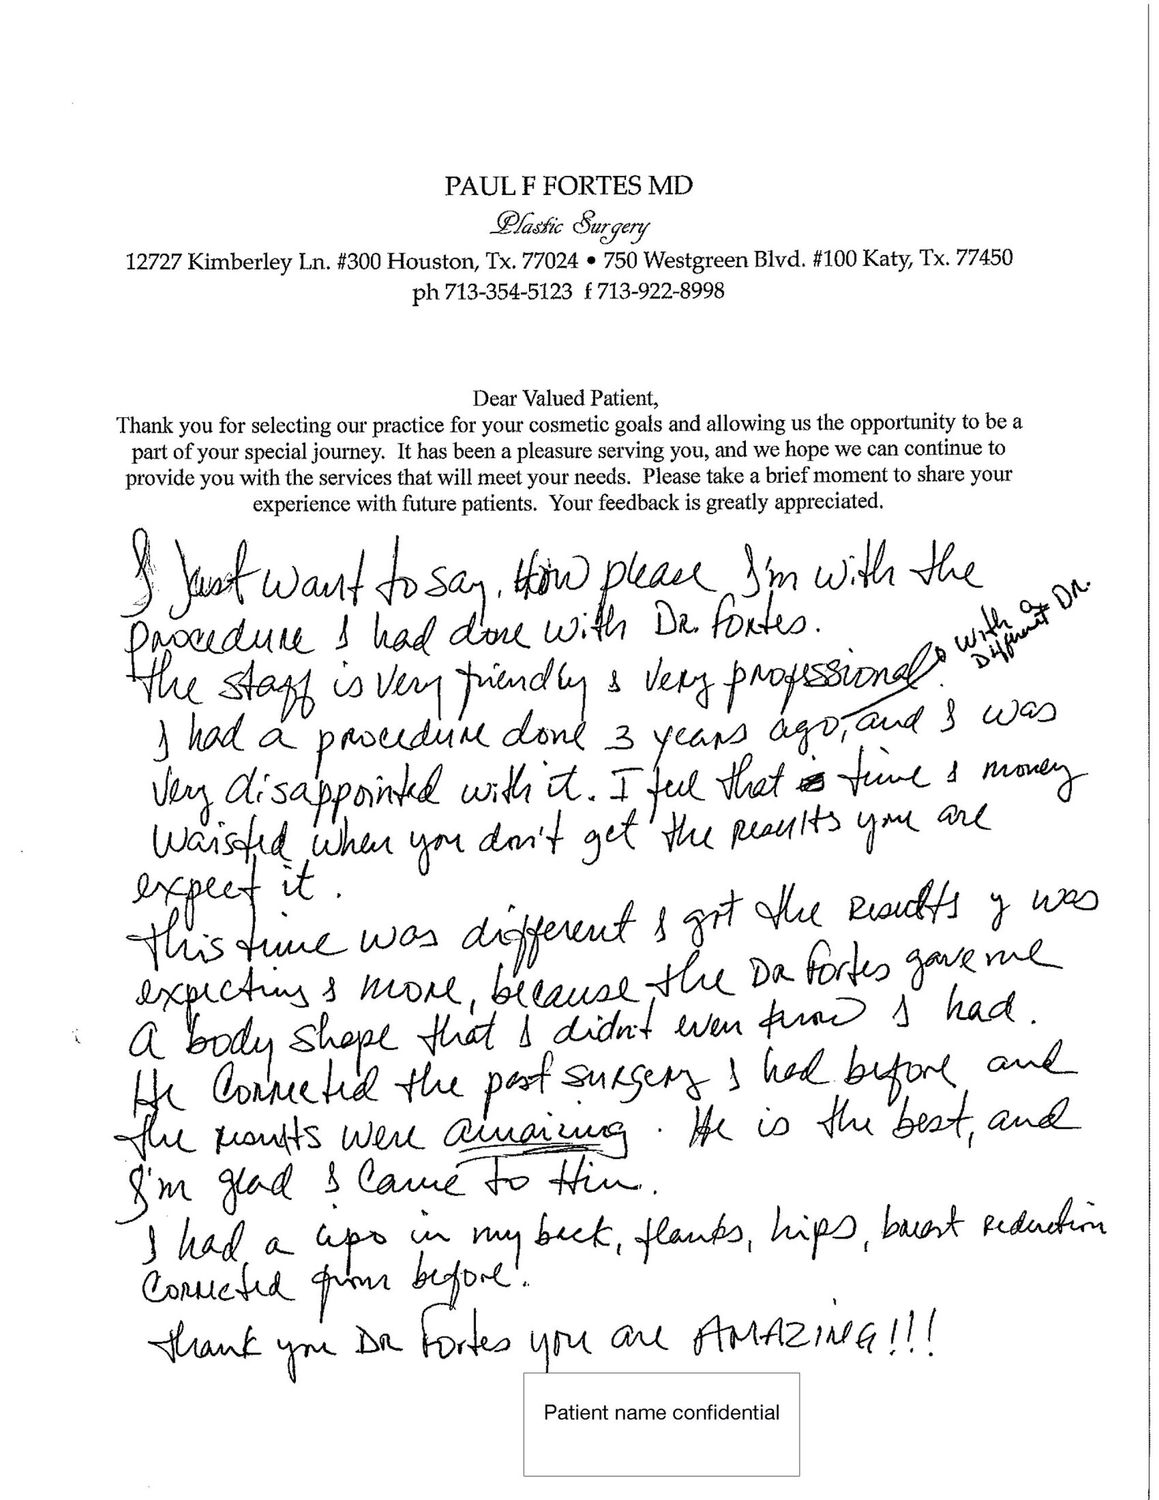 PAUL F FORTES MD
Plastic Surgery
12727 Kimberley Ln. #300 Houston, Tx. 77024 • 750 Westgreen Blvd. #100 Katy, Tx. 77450
ph 713-354-5123 f 713-922-8998
Dear Valued Patient,
Thank you for selecting our practice for your cosmetic goals and allowing us the opportunity to be a
part of your special journey. It has been a pleasure serving you, and we hope we can continue to
provide you with the services that will meet your needs. Please take a brief moment to share your
experience with future patients. Your feedback is greatly appreciated.
I Just want to say, How please I'm with the
procedure I had done with DR. Fortes.
The staff is very friendly & very professional.
with a
Different DR.
I had a procedure done 3 years ago, and I was
very disappointed with it. I feel that is time & money
Waisted when you don't get the results you are
expect it.
This time was different I got the results y was
expecting & more, because the DR Fortes gave me
A body shape that I didn't even know I had.
He Corrected the past surgery I had before and
the results were amaizing. He is the best, and
I'm glad I came to Him.
I had a lipo in my back, flanks, hips, breast reduction
Corrected from before.
Thank you DR Fortes you are AMAZING!!!
Patient name confidential